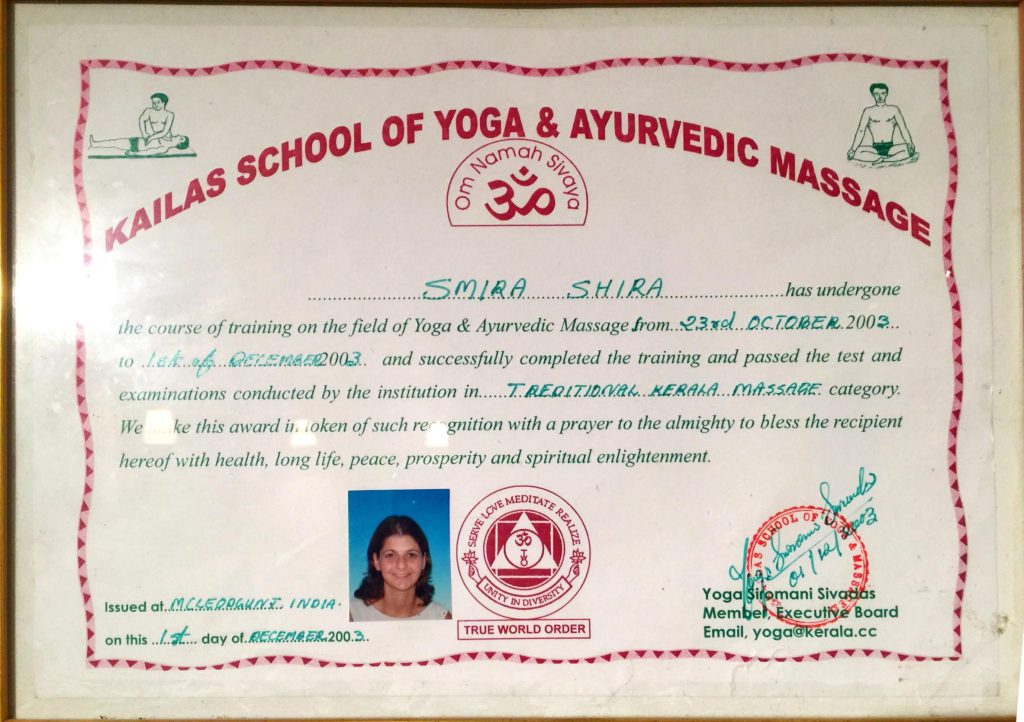 KAILAS SCHOOL OF YOGA & AYURVEDIC MASSAGE
Om Namah Sivaya
ॐ
SMIRA SHIRA has undergone
the course of training on the field of Yoga & Ayurvedic Massage from 23rd OCTOBER 2003
to 1st of DECEMBER 2003 and successfully completed the training and passed the test and
examinations conducted by the institution in TREDITIONAL KERALA MASSAGE category.
We this award in token of such recognition with a prayer to the almighty to bless the recipient
hereof with health, long life, peace, prosperity and spiritual enlightenment.
SERVE LOVE MEDITATE REALIZE
ॐ
UNITY IN DIVERSITY
TRUE WORLD ORDER
Issued at MCLEODGUNJ. INDIA.
on this 1st day of DECEMBER 2003.
SCHOOL OF YOGA & MASSAGE
01/12/2003
Yoga Siromani Sivadas
Member, Executive Board
Email, yoga@kerala.cc